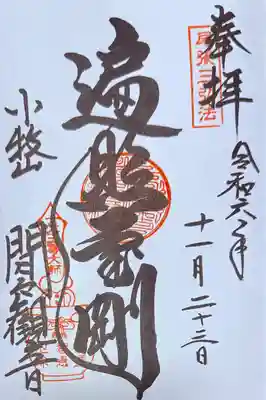 奉拝
令和六年
十一月二十三日
尾張三弘法
遍照金剛
小牧山
間々観音